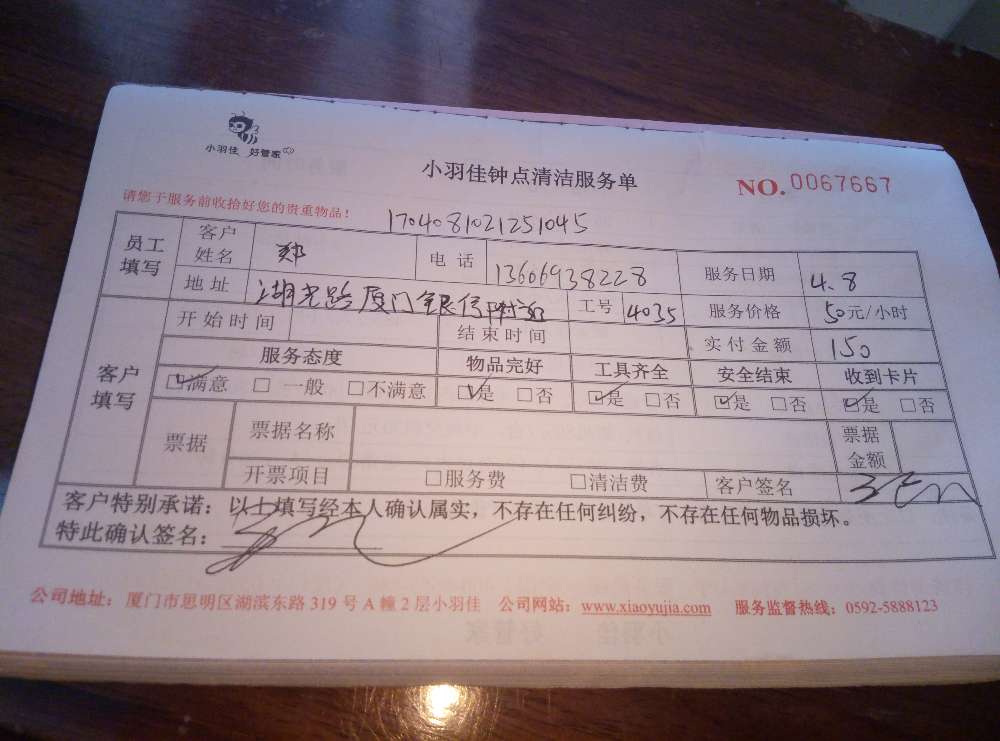 小羽佳 好管家
小羽佳钟点清洁服务单
NO.0067667
请您于服务前收拾好您的贵重物品！
1704081021251045
员工填写 客户姓名 郑 电话 13606938228 服务日期 4.8
地址 湖光路厦门银行附近 工号 4035 服务价格 50元/小时
客户填写 开始时间 结束时间 实付金额 150
服务态度 物品完好 工具齐全 安全结束 收到卡片
☑满意 □一般 □不满意 ☑是 □否 ☑是 □否 ☑是 □否 ☑是 □否
票据 票据名称 票据金额
开票项目 □服务费 □清洁费 客户签名
客户特别承诺：以上填写经本人确认属实，不存在任何纠纷，不存在任何物品损坏。
特此确认签名：
公司地址：厦门市思明区湖滨东路319号A幢2层小羽佳 公司网站：www.xiaoyujia.com 服务监督热线：0592-5888123